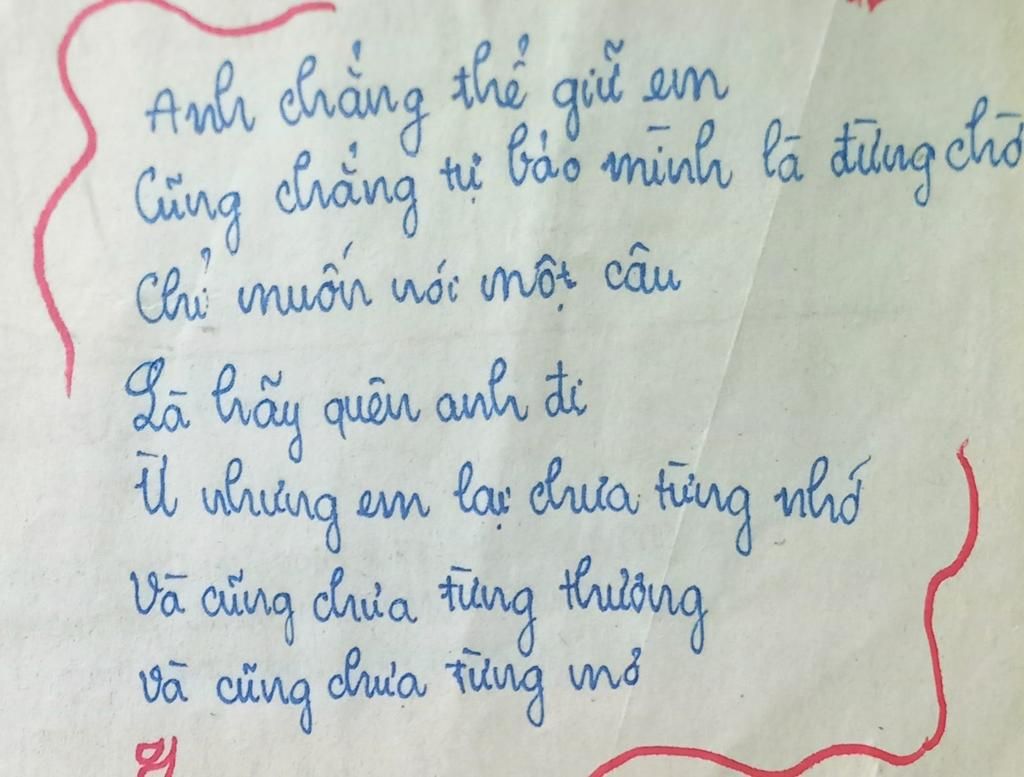 Anh chẳng thể giữ em
Cũng chẳng tự bảo mình là đừng chờ
Chỉ muốn nói một câu
Là hãy quên anh đi
Ừ nhưng em lại chưa từng nhớ
Và cũng chưa từng thương
Và cũng chưa từng mơ